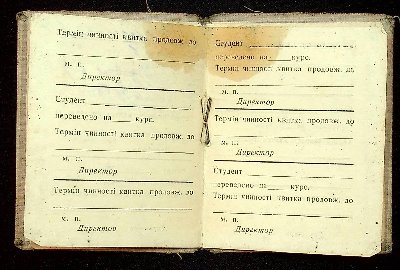 Термін чинності квитка продовж. до
м. п.
Директор
Студент
переведено на курс.
Термін чинності квитка продовж. до
м. п.
Директор
Термін чинності квитка продовж. до
м. п.
Директор
Студент
переведено на курс.
Термін чинності квитка продовж. до
м. п.
Директор
Термін чинності квитка продовж. до
м. п.
Директор
Студент
переведено на курс.
Термін чинності квитка продовж. до
м. п.
Директор